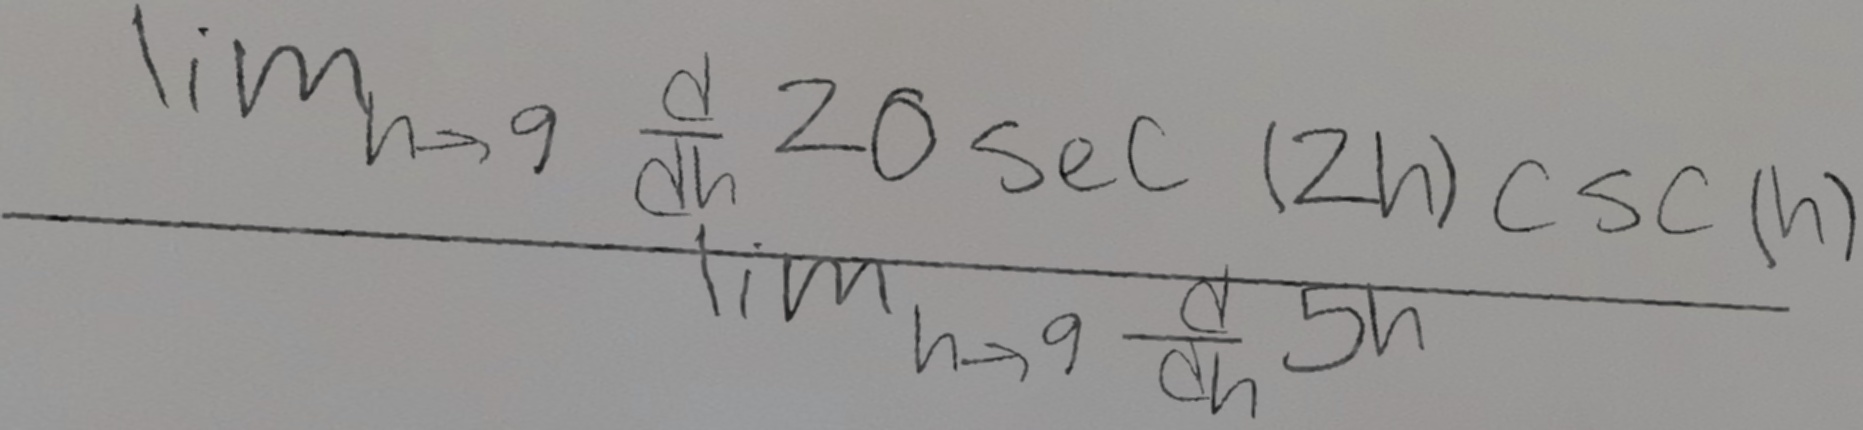 \frac{\lim_{h \to 9} \frac{d}{dh} 20 \sec (2h) \csc (h)}{\lim_{h \to 9} \frac{d}{dh} 5h}